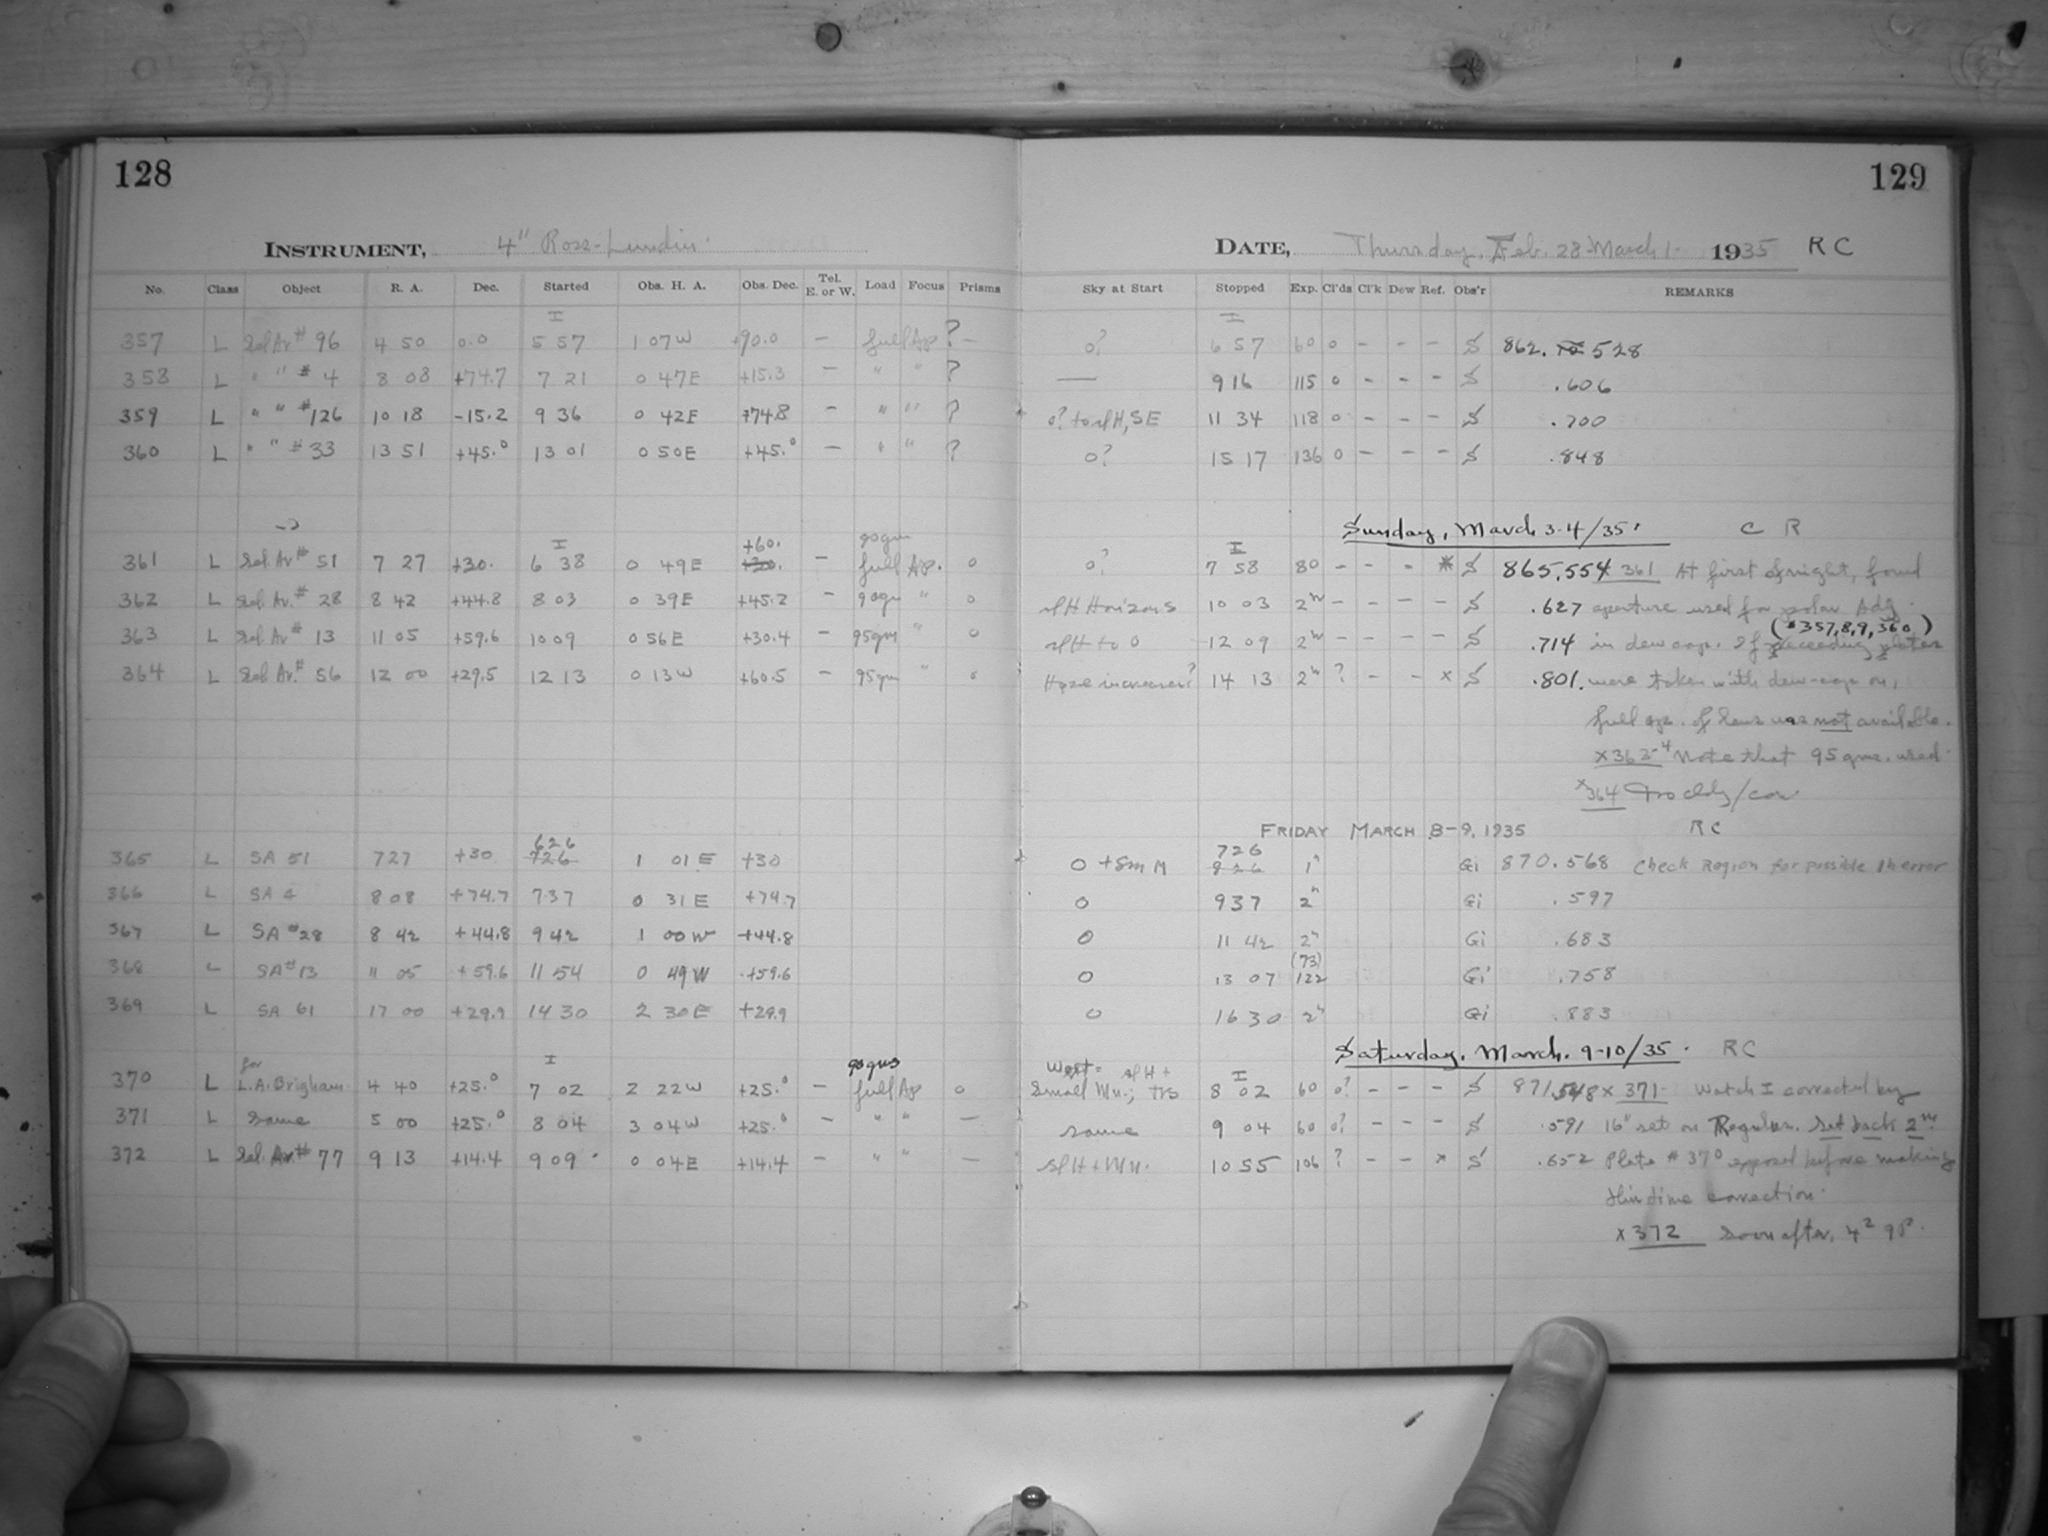 128
129
INSTRUMENT, 4" Ross-Lundin
DATE, Thursday, Feb. 28-March 1- 1935 RC
No. Class Object R. A. Dec. Started Obs. H. A. Obs. Dec. Tel. E. or W. Load Focus Prisms Sky at Start Stopped Exp. Cl'ds Cl'k Dew Ref. Obs'r REMARKS
I I
357 L Sel Ar # 96 4 50 0.0 5 57 1 07 W +90.0 – full Ap ? – 0? 6 57 60 0 - - - S 862. 528
358 L " " # 4 8 08 +74.7 7 21 0 47E +15.3 – " " ? — 9 16 115 0 - - - S .606
359 L " " #126 10 18 -15.2 9 36 0 42E +74.8 – " " ? 0? to slH, SE 11 34 118 0 - - - S .700
360 L " " # 33 13 51 +45.0 13 01 0 50E +45.0 – " " ? 0? 15 17 136 0 - - - S .848
Sunday, March 3-4/35. C R
+60. 90qm
I I
361 L Sel. Ar # 51 7 27 +30. 6 38 0 49E +30. – full Ap. 0 0? 7 58 80 - - - * S 865.554 x 361 At first of night, found
362 L Sel. Ar. # 28 8 42 +44.8 8 03 0 39E +45.2 – 90qm " 0 slH Horizons 10 03 2h - - - - S .627 aperture used for polar Adj.
(#357,8,9,360)
363 L Sel Ar # 13 11 05 +59.6 10 09 0 56E +30.4 – 95qm " 0 slH to 0 12 09 2h - - - - S .714 in dew cap. If preceeding plates
364 L Sel Ar. # 56 12 00 +29.5 12 13 0 13W +60.5 – 95qm " 0 Haze increases? 14 13 2h ? - - x S .801. were taken with dew-cap on,
full ap. of lens was not available.
x 363-4 Note that 95 qme. used
x 364
FRIDAY MARCH 8-9, 1935 RC
626 726
365 L SA 51 7 27 +30 726 1 01 E +30 0 + Sm M 826 1h Gi 870.568 Check Region for possible 1h error
366 L SA 4 8 08 +74.7 7 37 0 31 E +74.7 0 9 37 2h Gi .597
367 L SA #28 8 42 +44.8 9 42 1 00 W +44.8 0 11 42 2h Gi .683
(73)
368 L SA# 13 11 05 +59.6 11 54 0 49 W +59.6 0 13 07 122 Gi .758
369 L SA 61 17 00 +29.9 14 30 2 30 E +29.9 0 16 30 2h Gi .883
Saturday, March. 9-10/35. RC
for I 90qms West= slH + I
370 L L.A. Brigham 4 40 +25.0 7 02 2 22 W +25.0 – full Ap 0 Small Mn.; 8 02 60 0? - - - S 871.548 x 371- Watch I corrected by
371 L same 5 00 +25.0 8 04 3 04W +25.0 – " " — same 9 04 60 0? - - - S .591 16" set on Regular. Set back 2m.
372 L Sel. Ar# 77 9 13 +14.4 9 09 0 04E +14.4 – " " — slH + Mn. 10 55 106 ? - - * S .652 Plate # 370 exposed before making
this time correction.
x 372 soon after,